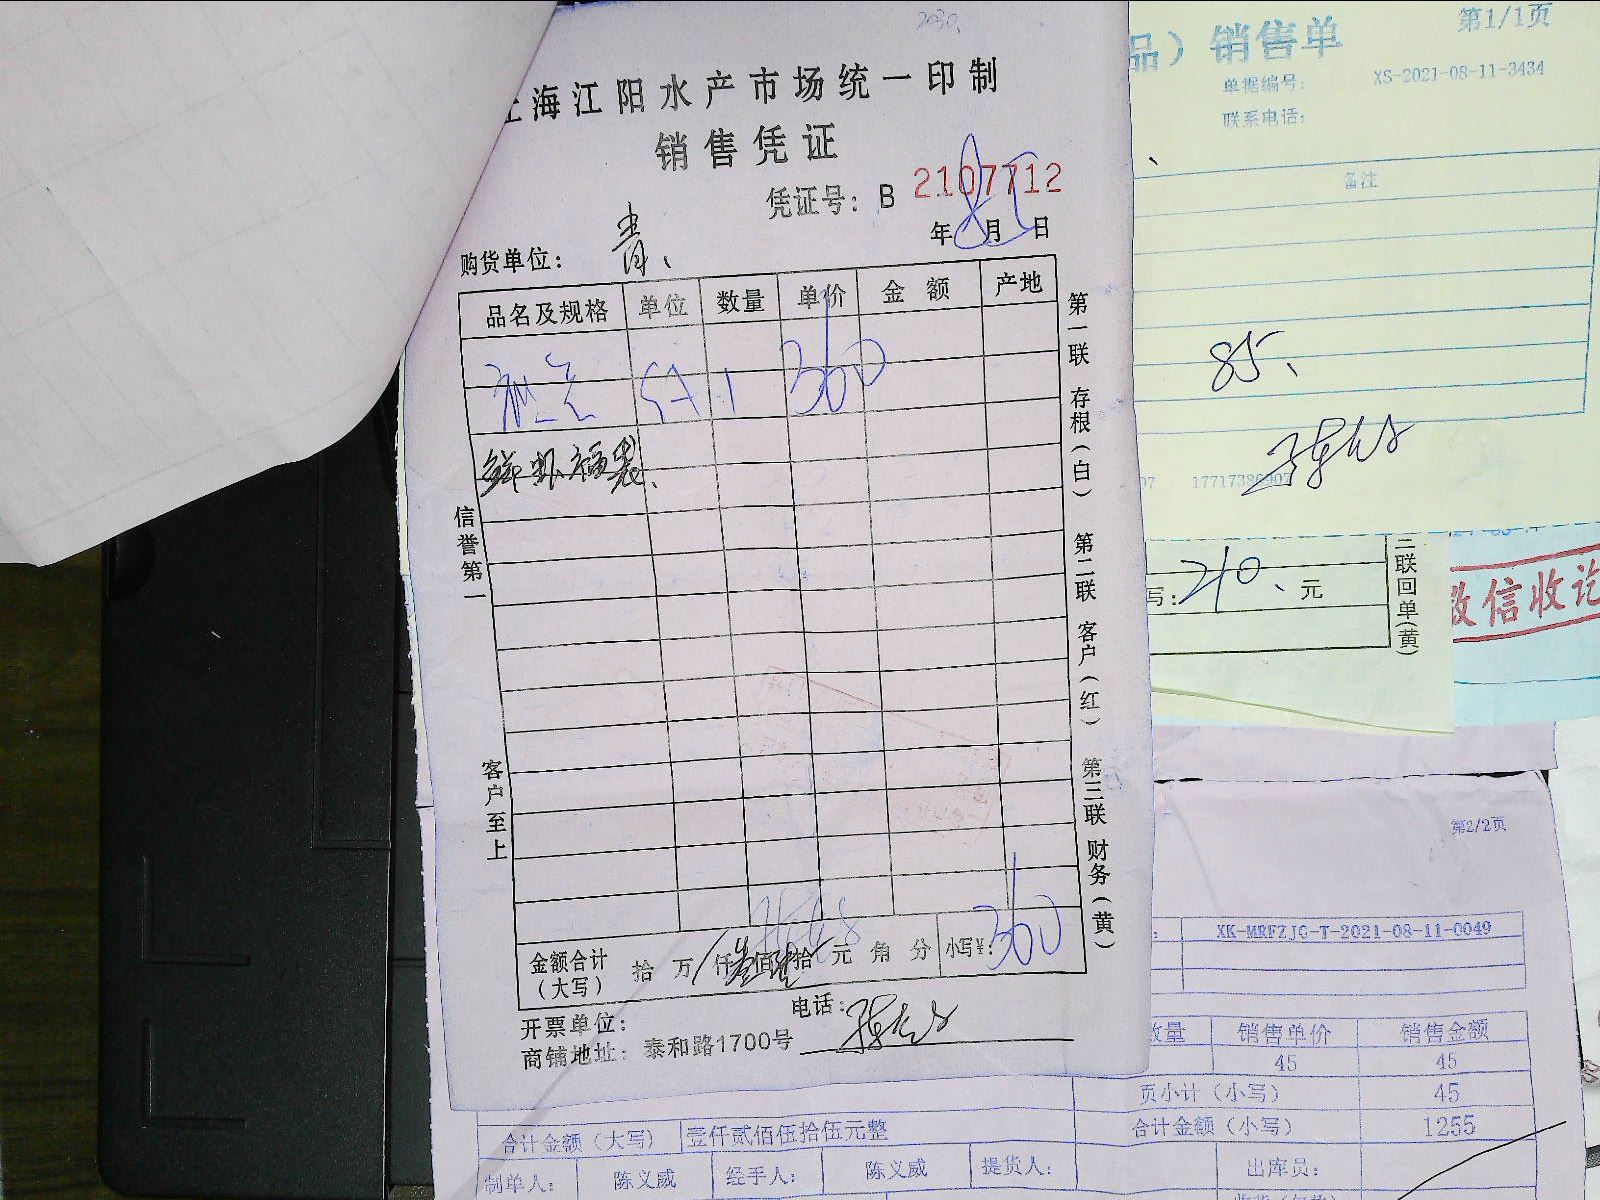 2030
上海江阳水产市场统一印制
销售凭证
凭证号：B 2107712
年8月 日
购货单位：青、
品名及规格 单位 数量 单价 金额 产地
1 360
鲜虾福袋、
信誉第一
客户至上
第一联 存根（白） 第二联 客户（红） 第三联 财务（黄）
金额合计（大写） 拾 万 仟 叁佰陆拾 元 角 分 小写￥：360
开票单位： 电话：
商铺地址：泰和路1700号
品）销售单
第1/1页
单据编号： XS-2021-08-11-3434
联系电话：
备注
85、
07 17717386907
写：210、元
三联回单(黄)
微信收讫
第2/2页
XK-MRFZJG-T-2021-08-11-0049
数量 销售单价 销售金额
45 45
页小计（小写） 45
合计金额（大写） 壹仟贰佰伍拾伍元整 合计金额（小写） 1255
制单人： 陈义威 经手人： 陈义威 提货人： 出库员：